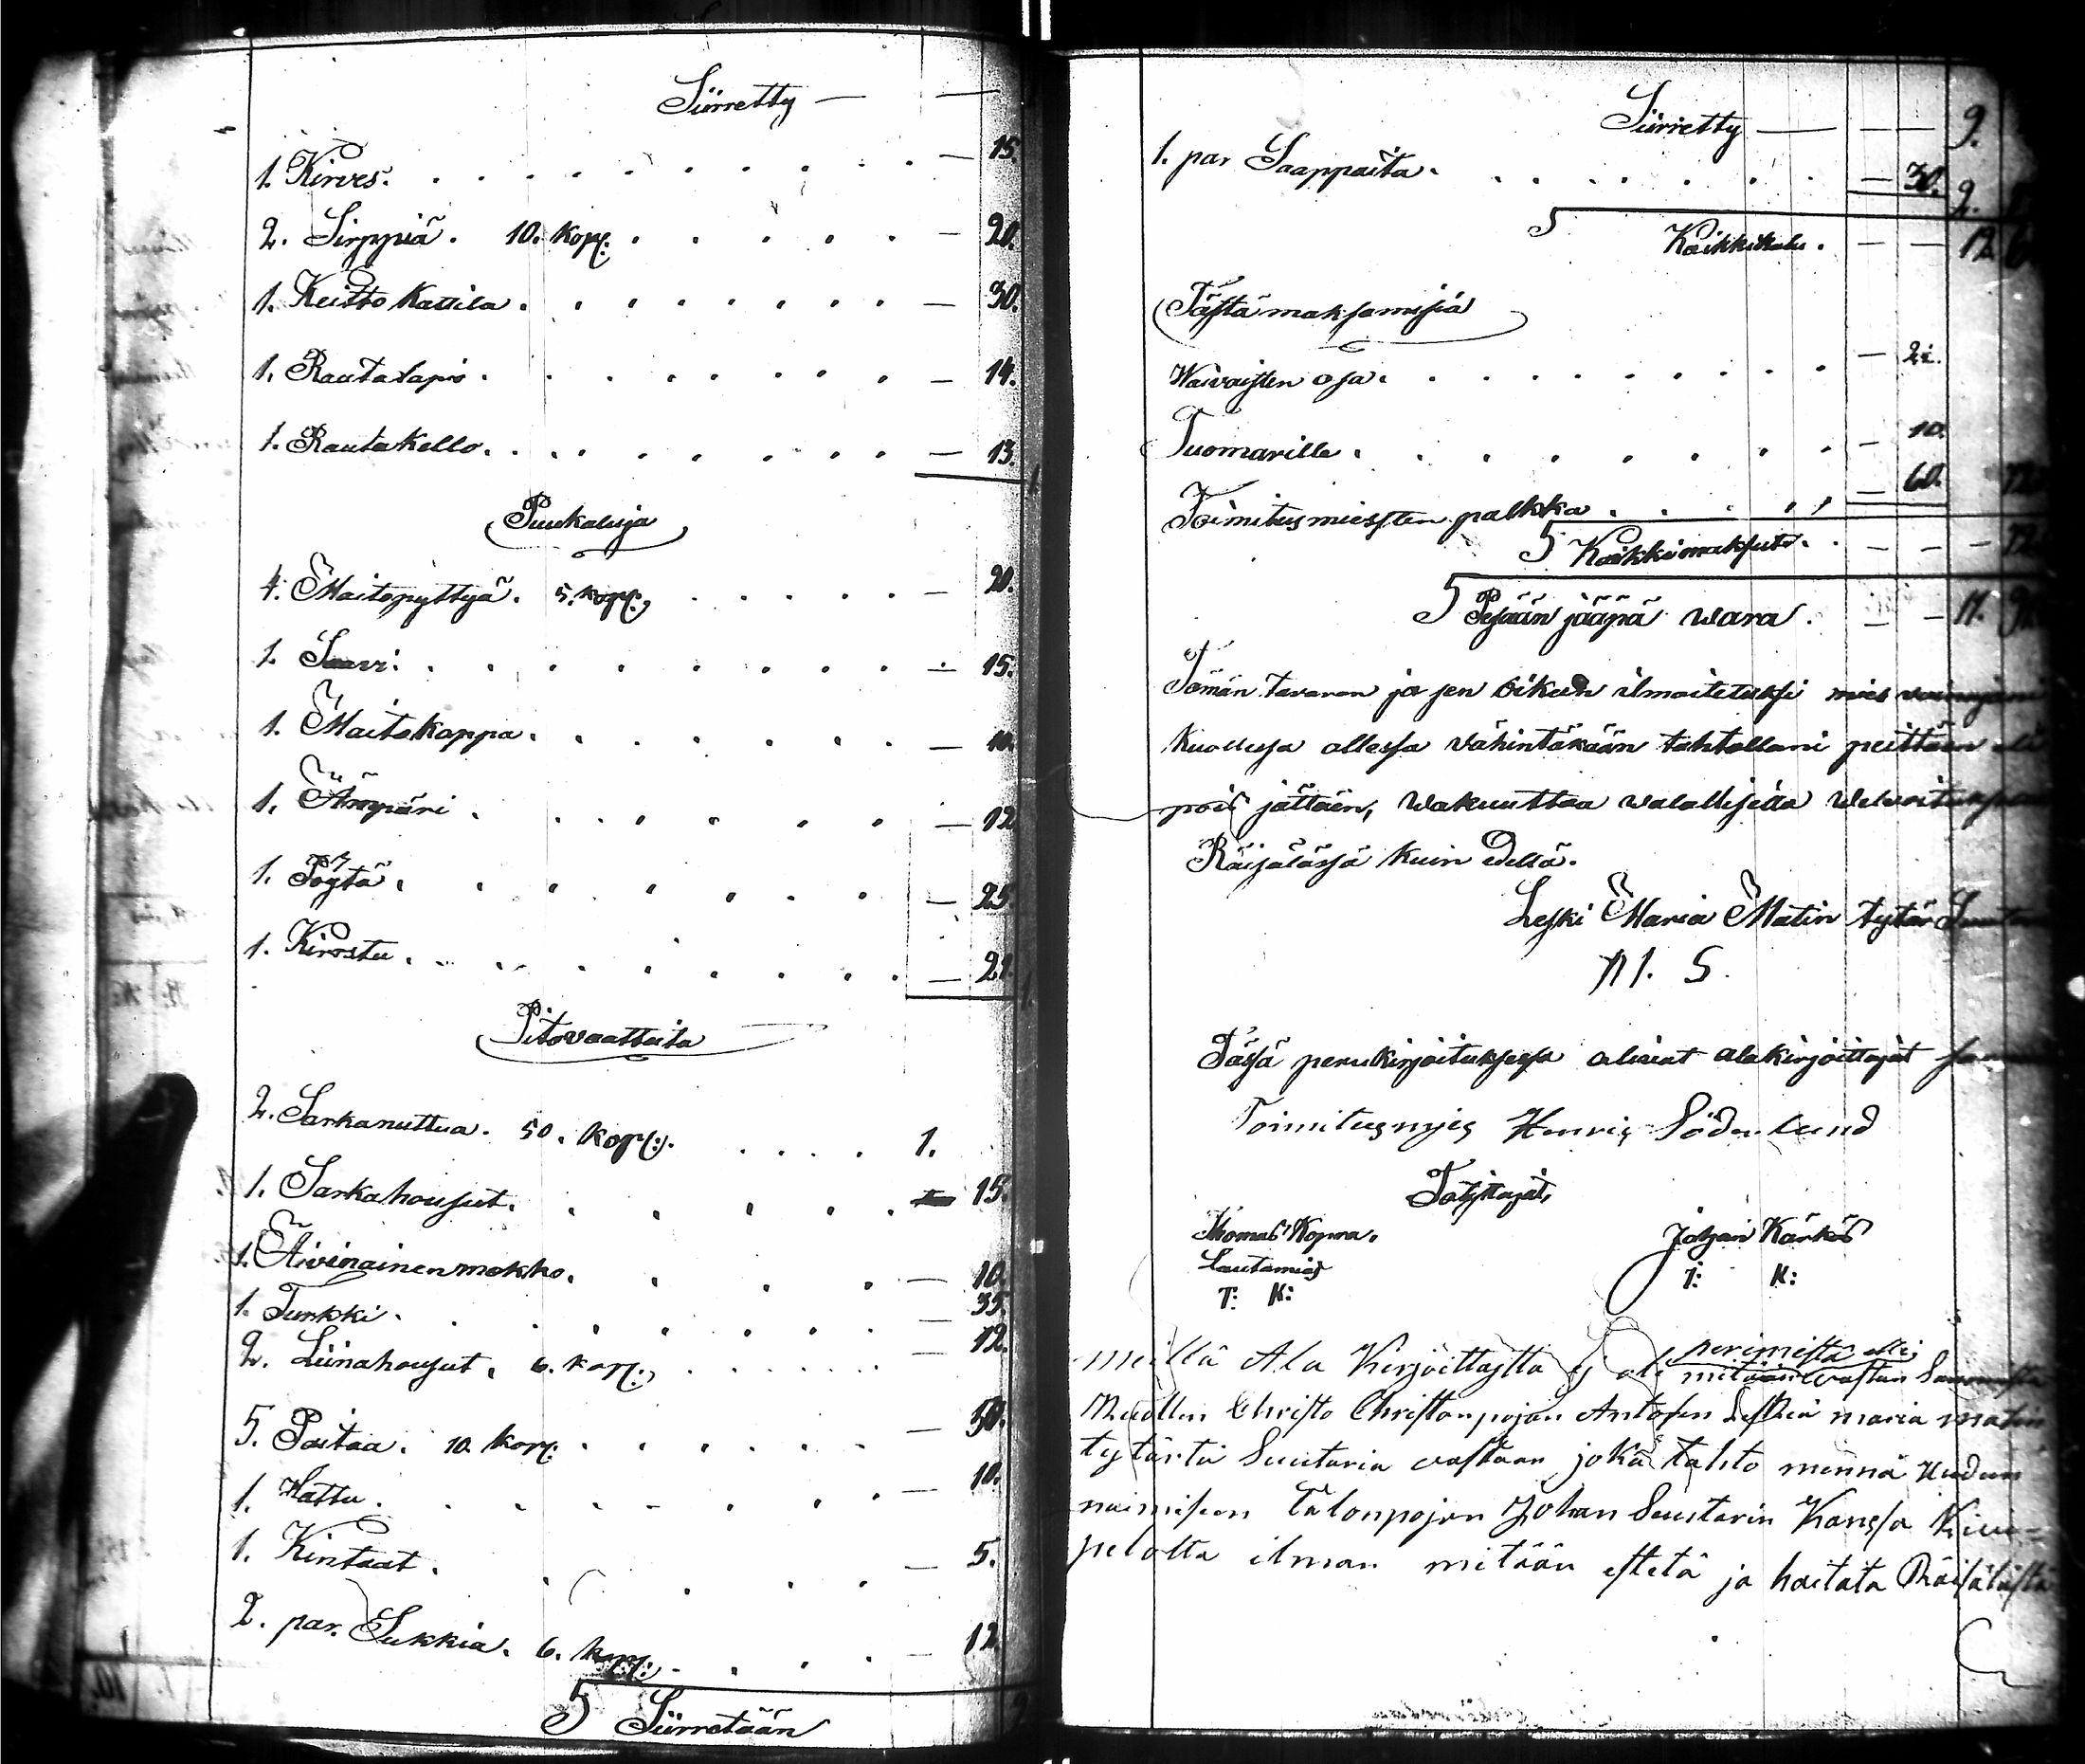 Siirretty — —
1. Kirves. — 15.
2. Sirppiä. 10. kop: — 20.
1. Keitto kattila. — 30.
1. Rautalapio. — 14.
1. Rautakello. — 13.
Puukaluja
4. Maitopyttyä. 5. kop: — 20.
1. Saavi. — 15.
1. Maitokappa. — 10.
1. Ämpäri. — 12
1. Pöytä. — 25
1. Kirstu. — 21.
Pitovaatteita
2. Sarkanuttua. 50. kop: 1.
1. Sarkahousut. 15
1. Aivinainenmekko. — 10.
1. Turkki. — 35.
2. Liinahousut. 6. kop: — 12.
5. Paitaa. 10. kop: — 50.
1. Hattu. — 10.
1. Kintaat. — 5.
2. par. Sukkia. 6. kop: — 12.
S Siirretään
Siirretty — — — 9.
1. par Saappaita. — 30. 2.
S Kaikkikalu. — — 12
Tästä maksamisia
Waivaisten osa. —
Tuomarille. — 10.
Toimitusmiesten palkka. — 60.
S Kaikkimaksut. — — —
S Pesään jääpä wara. — — 11.
Tämän tavaran ja sen oikein ilmoitetuksi mies
kuollesa ollessa vähintäkään tahtollani peittäin
pois jättäin, wakuuttaa walallisella
Räisälässä kuin edellä.
Leski Maria Matin tytär
M. S.
Tässä perukirjoituksessa olivat alakirjoittajat
Toimitusmies Henrig Söderlund
Todistajat,
Thomas Kopra. Johan Kärkäs
Lautamies
T: K: T: K:
meillä Ala Kirjoittajtta ej ole perimistä elli
mitään vastan
Kuollen Christo Christonpojan Antosen Leskiä maria matin
tytärtä Suutaria vastaan joka tahto mennä Uuden
naimisen Talonpojan Johan Suutarin Kanssa Kiuu-
pelolta ilman mitään estetä ja haitata Räisälästä